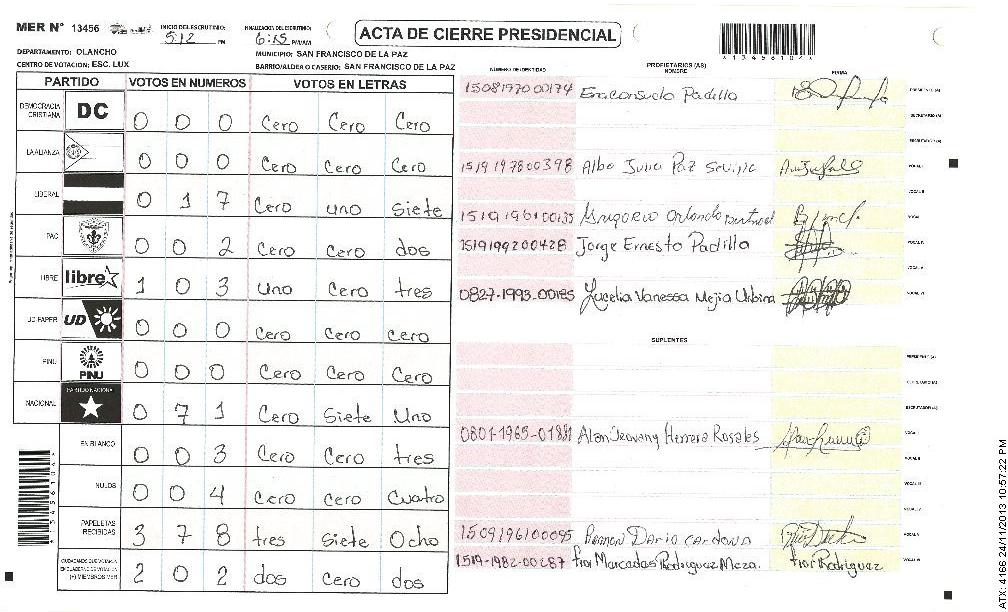 MER N° 13456
INICIO DEL ESCRUTINIO: 5:12 PM
FINALIZACION DEL ESCRUTINIO: 6:15 PM/AM
ACTA DE CIERRE PRESIDENCIAL
*1345610*
DEPARTAMENTO: OLANCHO
MUNICIPIO: SAN FRANCISCO DE LA PAZ
CENTRO DE VOTACION: ESC. LUX
BARRIO/ALDEA O CASERIO: SAN FRANCISCO DE LA PAZ
PARTIDO VOTOS EN NUMEROS VOTOS EN LETRAS
DEMOCRACIA CRISTIANA DC 0 0 0 Cero Cero Cero
LA ALIANZA 0 0 0 Cero Cero Cero
LIBERAL 0 1 7 Cero uno Siete
PAC 0 0 2 Cero Cero dos
LIBRE libre 1 0 3 uno Cero tres
UD-FAPER UD 0 0 0 Cero Cero Cero
PINU PINU 0 0 0 Cero Cero Cero
NACIONAL PARTIDO NACIONAL 0 7 1 Cero Siete Uno
EN BLANCO 0 0 3 Cero Cero tres
NULOS 0 0 4 Cero Cero Cuatro
PAPELETAS RECIBIDAS 3 7 8 tres Siete Ocho
2 0 2 dos Cero dos
NUMERO DE IDENTIDAD PROPIETARIOS (AS) NOMBRE FIRMA
1508197000174 Padilla PRESIDENTE (A)
SECRETARIO (A)
ESCRUTADOR (A)
1519197800398 Alba Julia Paz VOCAL I
VOCAL II
Orlando
1519199200428 Jorge Ernesto Padilla VOCAL IV
VOCAL V
0827-1993-00185 Lucelia Vanessa Mejia Urbina VOCAL VI
SUPLENTES
PRESIDENTE (A)
SECRETARIO (A)
ESCRUTADOR (A)
Alan Herrera Rosales VOCAL I
VOCAL II
VOCAL III
VOCAL IV
1509196100095 Ramon Dario Cardona VOCAL V
1519-1982-00287 Rodriguez Meza. Rodriguez VOCAL VI
ATX: 4166 24/11/2013 10:57:22 PM